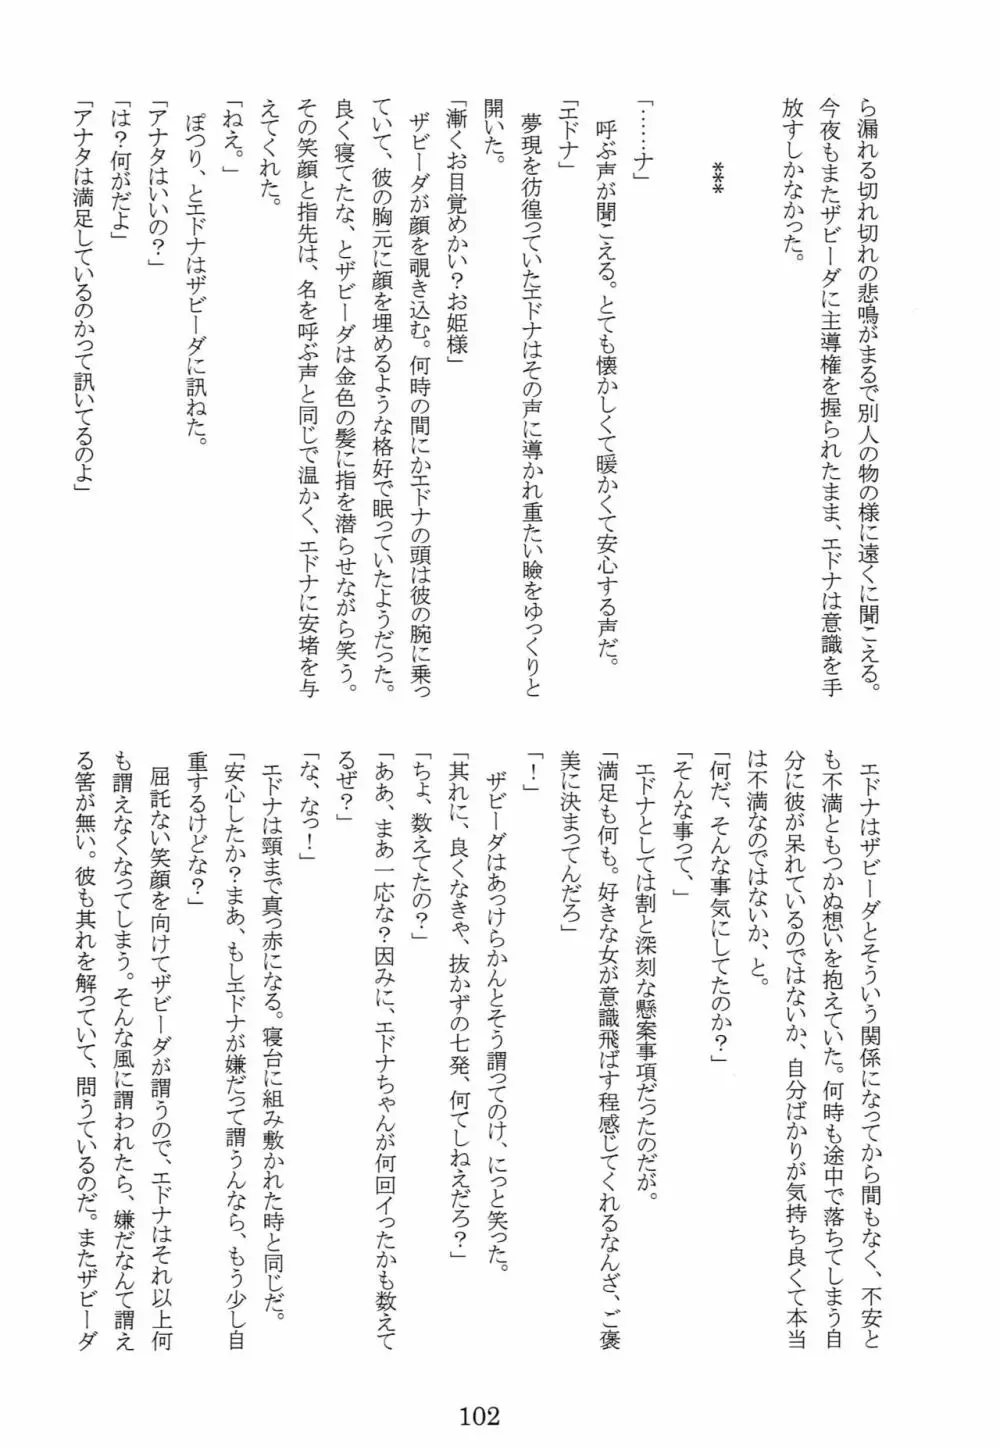 ら漏れる切れ切れの悲鳴がまるで別人の物の様に遠くに聞こえる。
今夜もまたザビーダに主導権を握られたまま、エドナは意識を手
放すしかなかった。
***
「……ナ」
呼ぶ声が聞こえる。とても懐かしくて暖かくて安心する声だ。
「エドナ」
夢現を彷徨っていたエドナはその声に導かれ重たい瞼をゆっくりと
開いた。
「漸くお目覚めかい？お姫様」
ザビーダが顔を覗き込む。何時の間にかエドナの頭は彼の腕に乗っ
ていて、彼の胸元に顔を埋めるような格好で眠っていたようだった。
良く寝てたな、とザビーダは金色の髪に指を潜らせながら笑う。
その笑顔と指先は、名を呼ぶ声と同じで温かく、エドナに安堵を与
えてくれた。
「ねえ。」
ぽつり、とエドナはザビーダに訊ねた。
「アナタはいいの？」
「は？何がだよ」
「アナタは満足しているのかって訊いてるのよ」
エドナはザビーダとそういう関係になってから間もなく、不安と
も不満ともつかぬ想いを抱えていた。何時も途中で落ちてしまう自
分に彼が呆れているのではないか、自分ばかりが気持ち良くて本当
は不満なのではないか、と。
「何だ、そんな事気にしてたのか？」
「そんな事って、」
エドナとしては割と深刻な懸案事項だったのだが。
「満足も何も。好きな女が意識飛ばす程感じてくれるなんざ、ご褒
美に決まってんだろ」
「！」
ザビーダはあっけらかんとそう謂ってのけ、にっと笑った。
「其れに、良くなきゃ、抜かずの七発、何てしねえだろ？」
「ちょ、数えてたの？」
「ああ、まあ一応な？因みに、エドナちゃんが何回イったかも数えて
るぜ？」
「な、なっ！」
エドナは頸まで真っ赤になる。寝台に組み敷かれた時と同じだ。
「安心したか？まあ、もしエドナが嫌だって謂うんなら、もう少し自
重するけどな？」
屈託ない笑顔を向けてザビーダが謂うので、エドナはそれ以上何
も謂えなくなってしまう。そんな風に謂われたら、嫌だなんて謂え
る筈が無い。彼も其れを解っていて、問うているのだ。またザビーダ
102